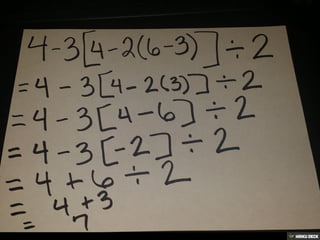 4-3[4-2(6-3)]÷2
=4-3[4-2(3)]÷2
=4-3[4-6]÷2
=4-3[-2]÷2
=4+6÷2
=4+3
=7